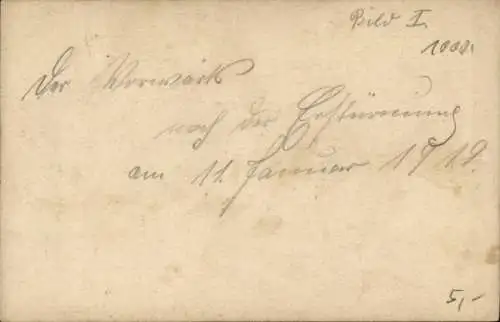 Bild I.
1000.
Der Vorwärts
nach der Erstürmung
am 11. Januar 1919.
5,-